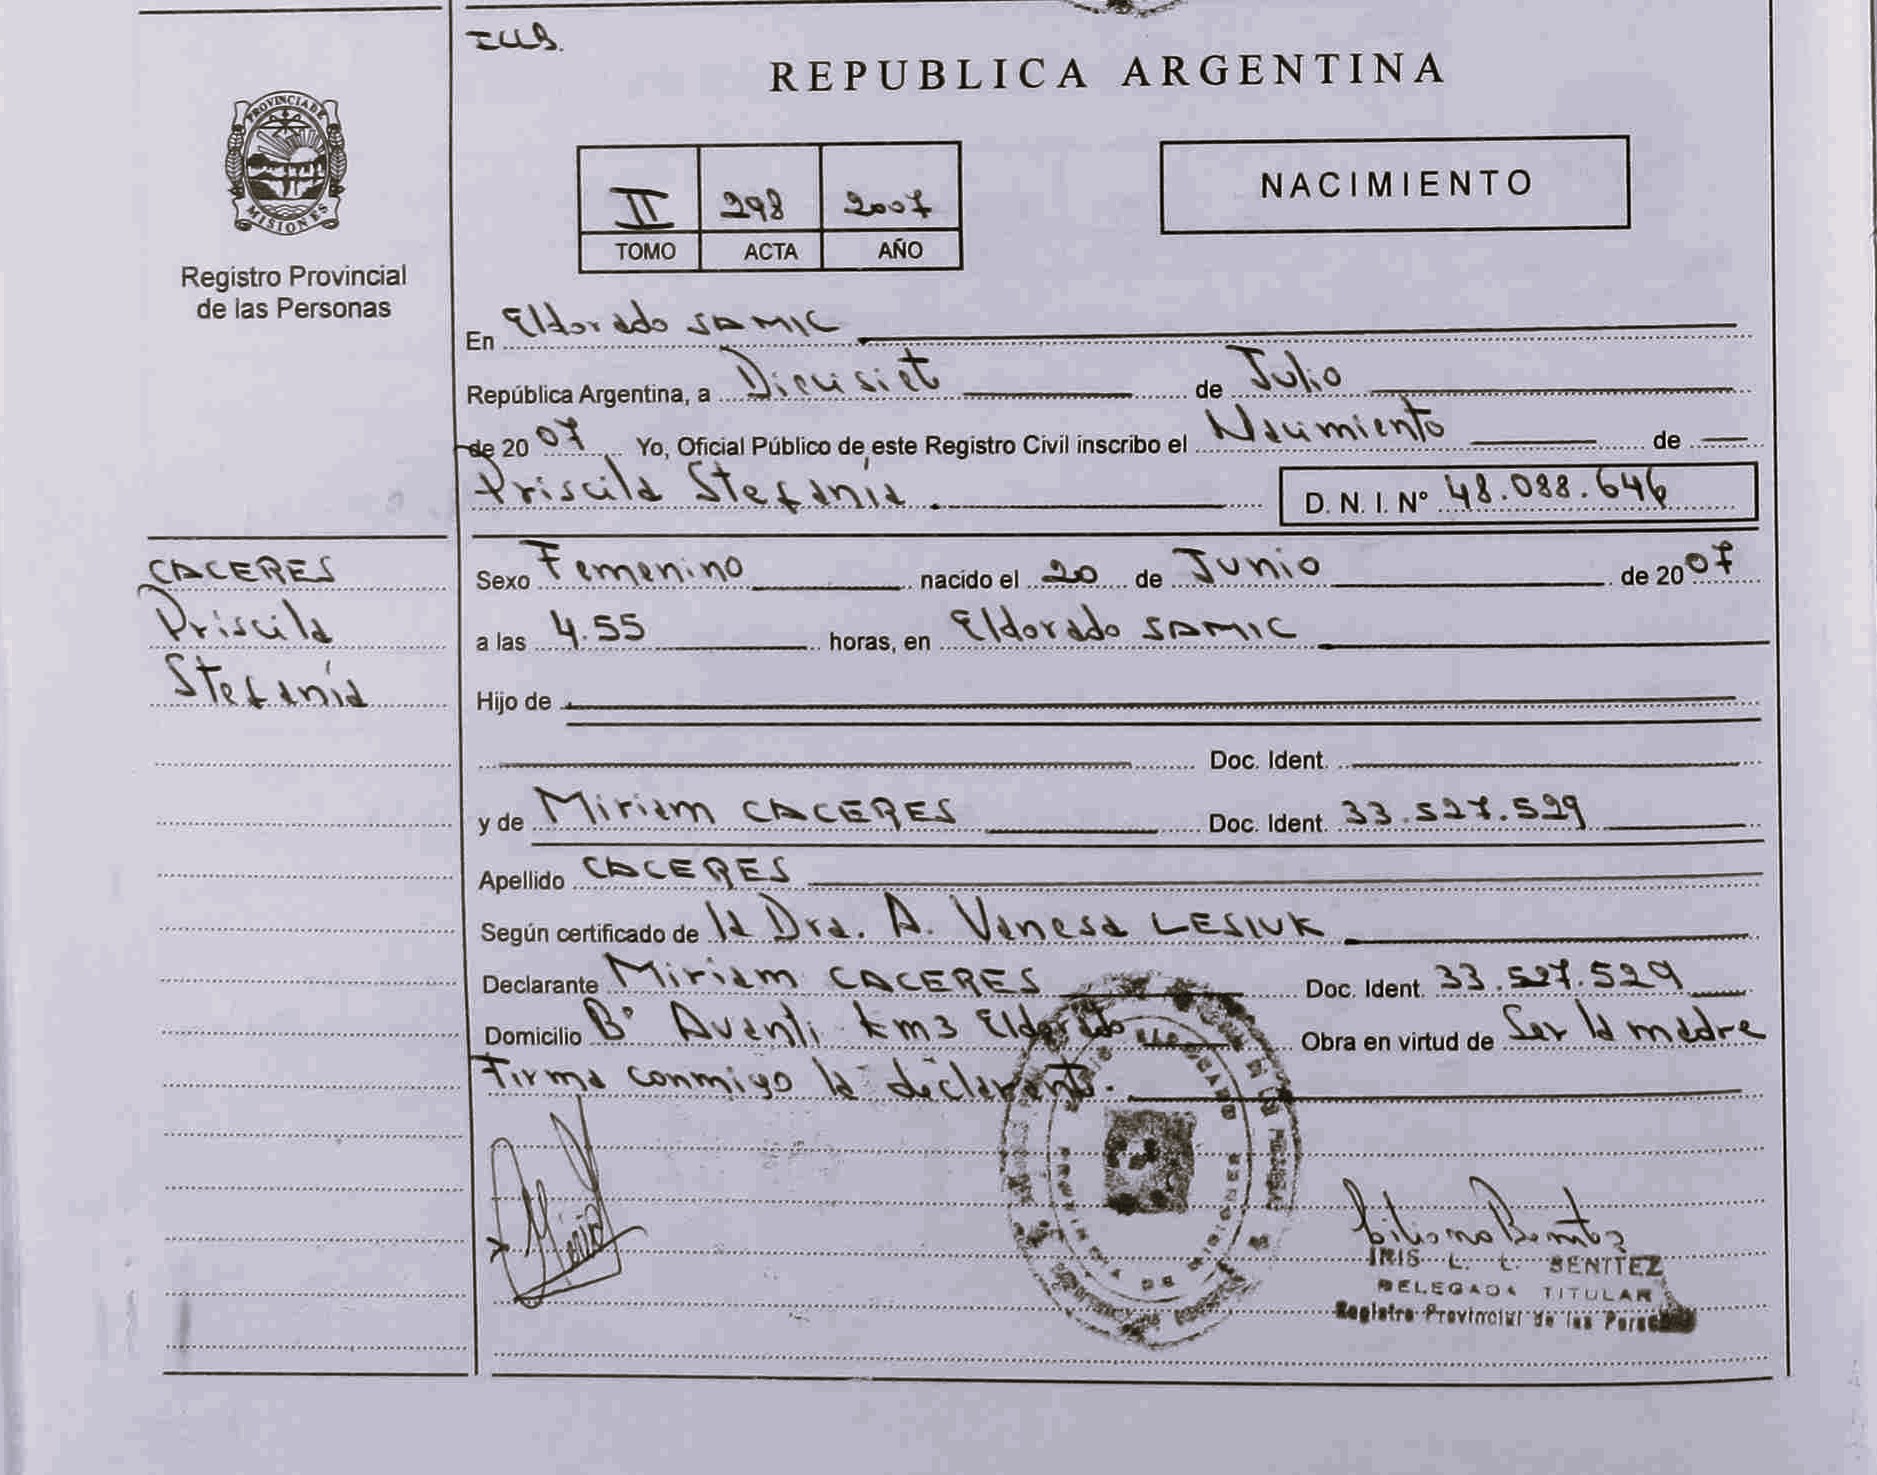 ILB.
REPUBLICA ARGENTINA
PROVINCIA DE
MISIONES
Registro Provincial
de las Personas
II 298 2007
TOMO ACTA AÑO
NACIMIENTO
En Eldorado SAMIC
República Argentina, a Diecisiet de Julio
de 2007 Yo, Oficial Público de este Registro Civil inscribo el Nacimiento de
Priscila Stefania. D. N. I. Nº 48.088.646
CACERES
Priscila
Stefanía
Sexo Femenino nacido el 20 de Junio de 2007
a las 4.55 horas, en Eldorado SAMIC
Hijo de
Doc. Ident.
y de Miriam CACERES Doc. Ident. 33.527.529
Apellido CACERES
Según certificado de la Dra. A. Vanesa LESIUK
Declarante Miriam CACERES Doc. Ident. 33.527.529
Domicilio Bº Aventi km3 Eldorado Obra en virtud de Ser la madre
Firma conmigo la declarante.
PROVINCIA DE MISIONES
IRIS L. L. BENITEZ
DELEGADA TITULAR
Registro Provincial de las Personas